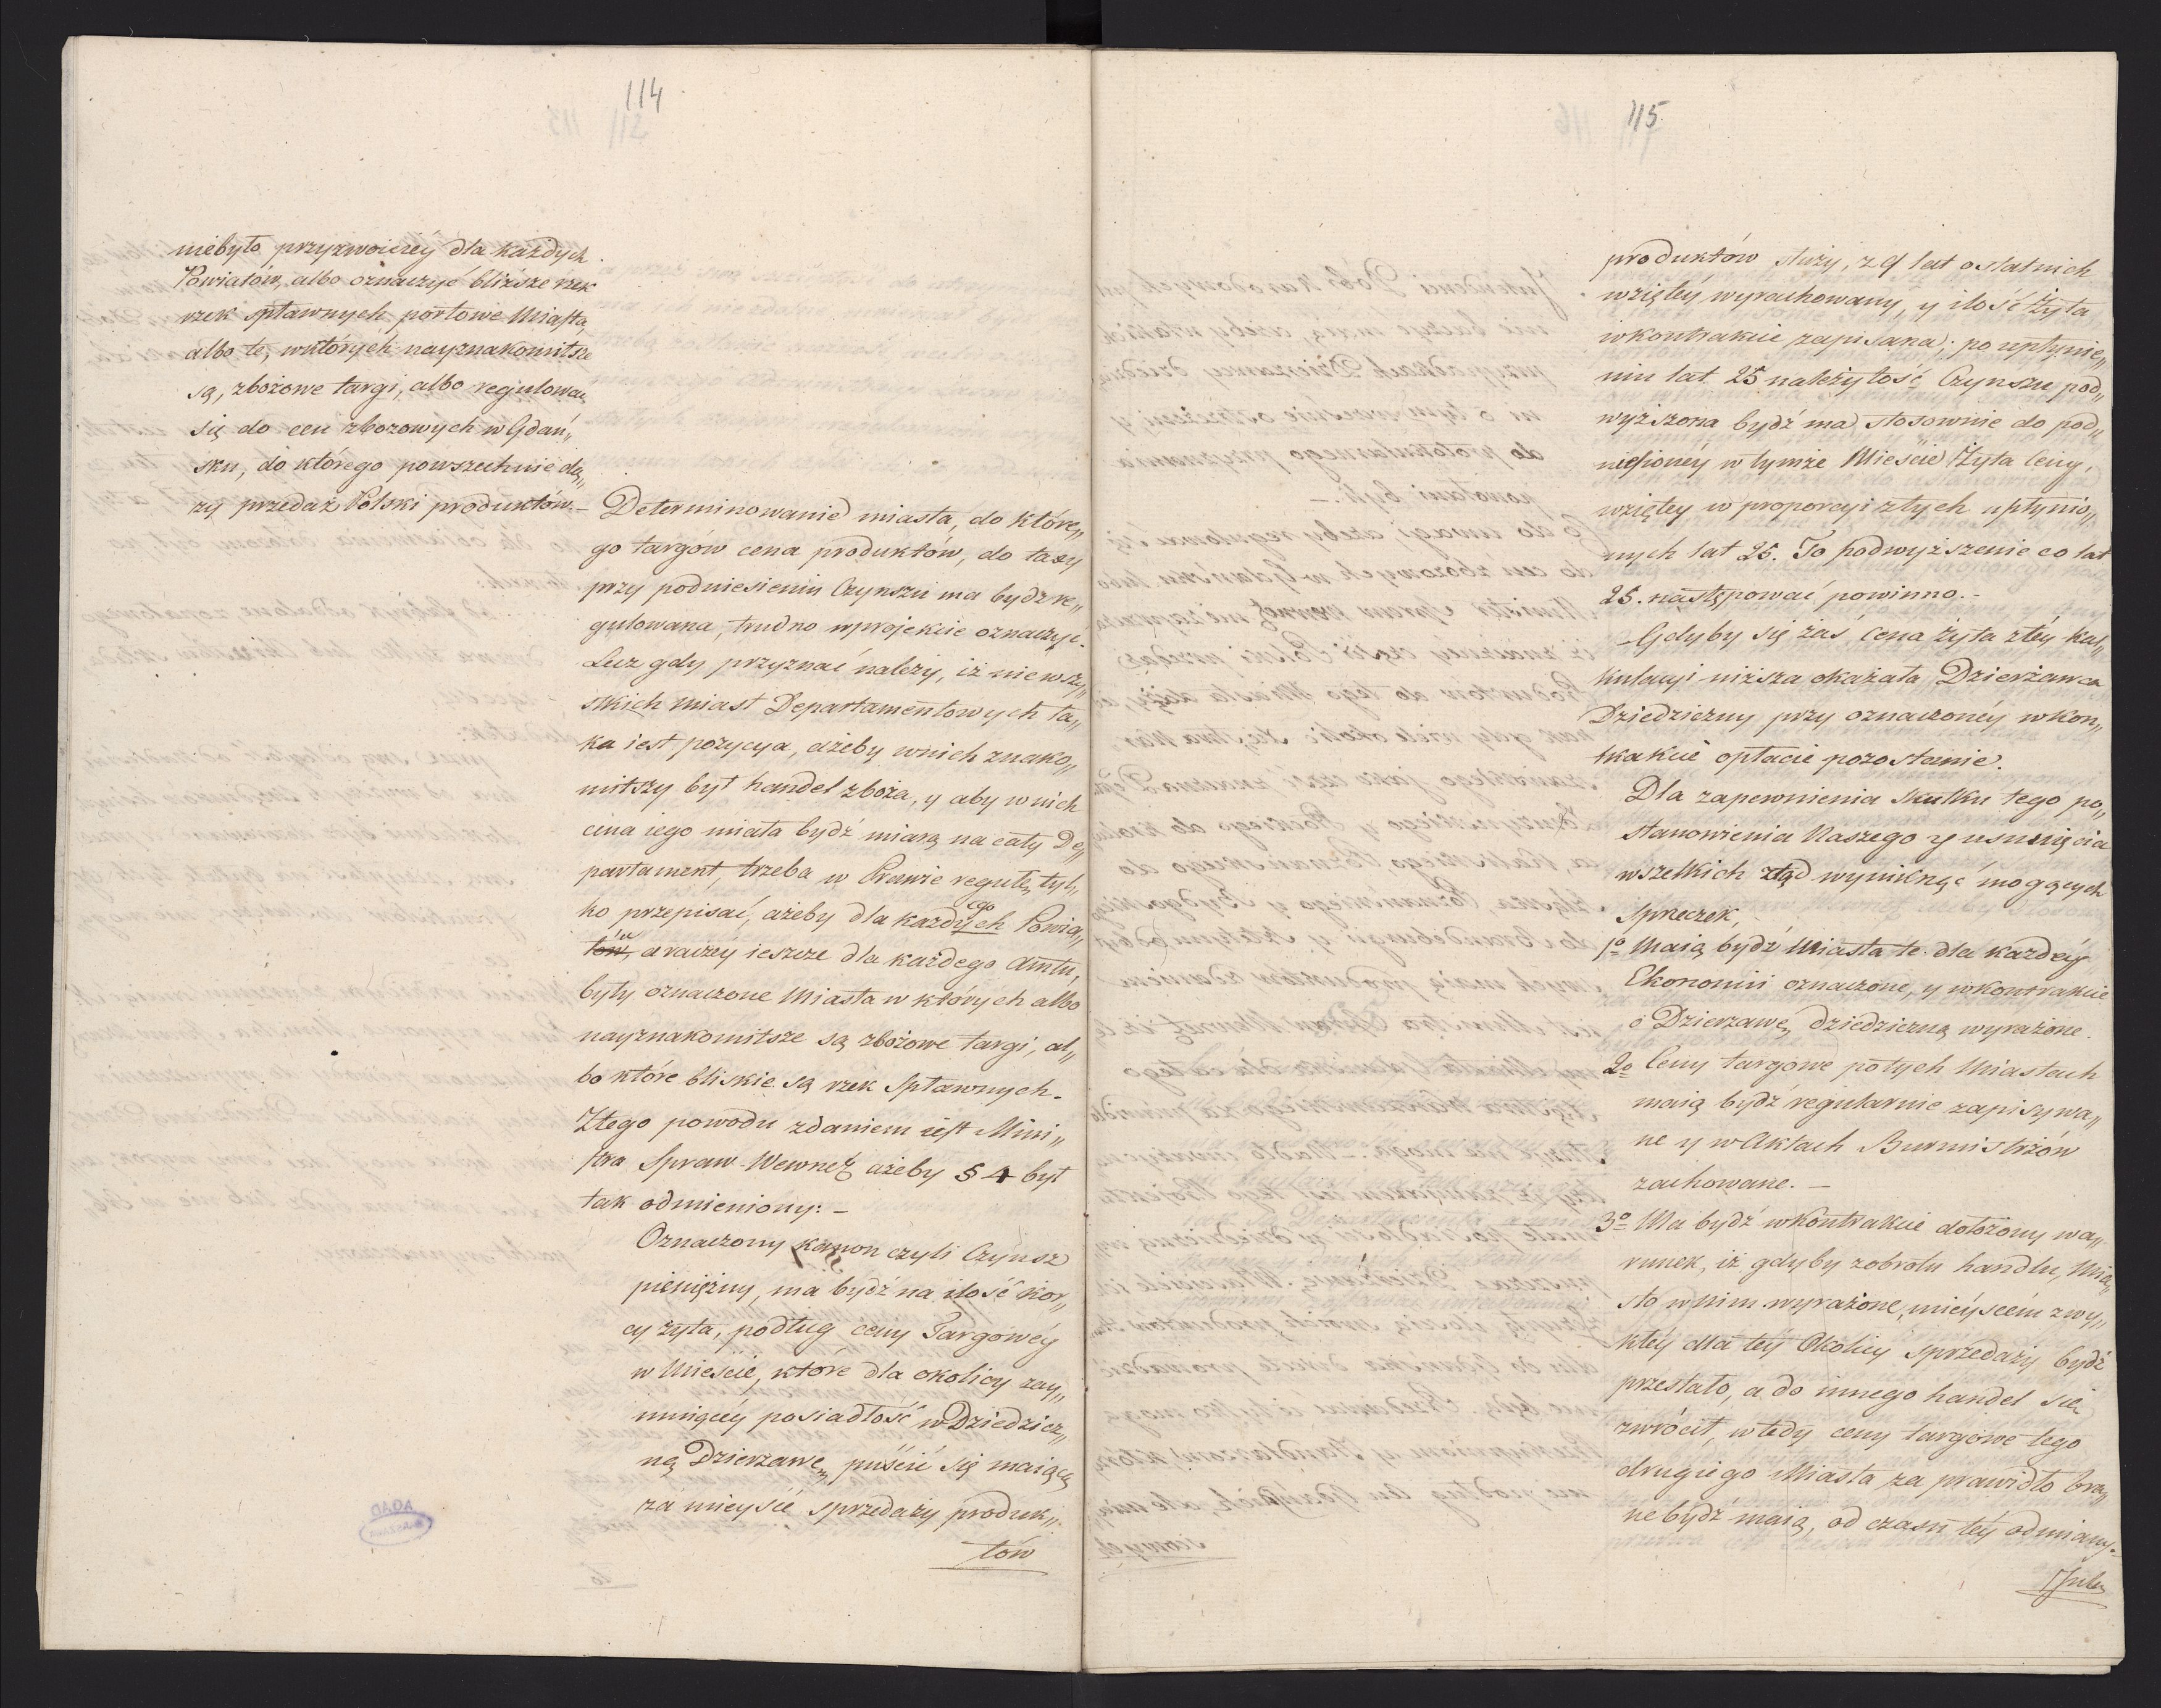 114
niebyło przyzwoiciey dla każdych
Powiatów, albo oznaczyć bliższe rzek
rzek spławnych portowe Miasta,
albo te, wktórych nayznakomitsze
są, zbożowe targi, albo regulować
się do cen zbożowych w Gdań„
sku, do którego powszechnie dą„
ży przedaż Polski produktów.–
Determinowanie miasta, do które„
go targów cena produktów, do taxy
przy podniesieniu Czynszu ma bydź re„
gulowana, trudno wprojekcie oznaczyć.
Lecz gdy przyznać należy, iż nie wszy„
stkich miast Departamentowych ta„
ka iest pozycya, ażeby wnich znako„
mitszy był handel zboża, y aby w nich
cena iego miała bydź miarą na cały De„
partament, trzeba w Prawie regułę tyl„
ko przepisać, ażeby dla każdych Powia„
ego
tów, a raczey ieszcze dla każdego Amtu,
były oznaczone Miasta w których albo
nayznakomitsze są zbożowe targi, al„
bo które bliskie są rzek Spławnych.
Ztego powodu zdaniem iest Mini„
stra Spraw Wewnęz ażeby § 4 był
tak odmieniony: –
Oznaczony kanon czyli Czynsz
pieniężny, ma bydź na ilość kor„
cy żyta, podług ceny Targowéy
w Mieście, które dla okolicy zay„
muiącéy posiadłość w Dziedzicz„
ną Dzierzawę, puścić się maiącą
za mieysce sprzedaży produk„
tów
115
produktów służy, z 9 lat ostatnich
wziętéy wyrachowany, y ilość Żyta
wkontrakcie zapisana; po upłynie„
niu lat 25 należytość Czynszu pod„
wyższona bydź ma stosownie do pod„
niesionéy w tymże Mieście Żyta Ceny,
wziętey w proporcyi ztych upłynio„
nych lat 25. To podwyższenie co lat
25. następować powinno.–
Gdyby się zaś, Cena żyta z téy kal„
kulacyi niższa okazała Dzierżawca
Dziedziczny przy oznaczonéy wkon„
trakcie opłacie pozostanie.
Dla zapewnienia Skutku tego po„
stanowienia Naszego y usunięcia
wszelkich ztąd wyniknąć mogących
Sprzeczek,
1º Maią bydź Miasta te dla każdéy
Ekonomii oznaczone, y wkontrakcie
o Dzierzawę dziedziczną wyrażone.
2º Ceny targowe potych Miastach
maią bydź regularnie zapisywa„
ne y w Aktach Burmistrzów
zachowane. –
3º Ma bydź wkontrakcie dołożony wa„
runek, iż gdyby zobrotu handlu, Mia„
sto w nim wyrażone, mieyscem zwy„
kłéy dla téy Okolicy Sprzedaży bydź
przestało, a do innego handel się
zwrócił, wtedy ceny targowe tego
drugiego Miasta za prawidło bra„
ne bydź maią, od czasu téy odmiany.